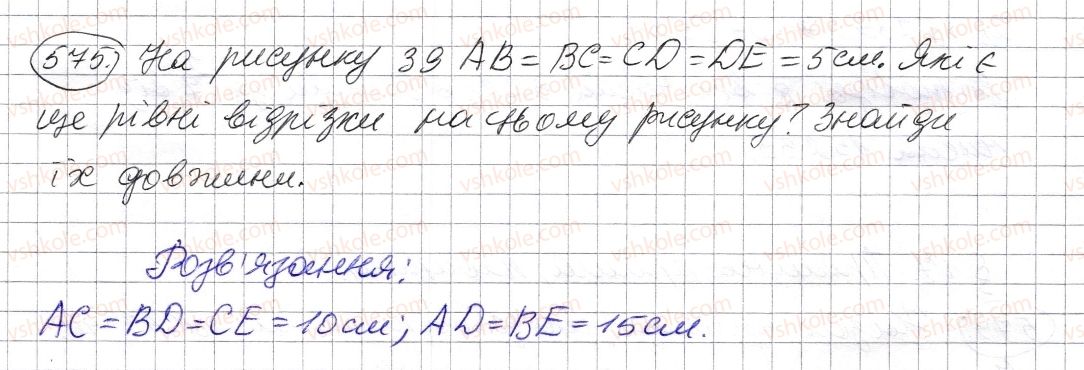 575.) На рисунку 39 AB = BC = CD = DE = 5 см. Які є
ще рівні відрізки на цьому рисунку? Знайди
їх довжини.
Розв'язання:
AC = BD = CE = 10 см; AD = BE = 15 см.